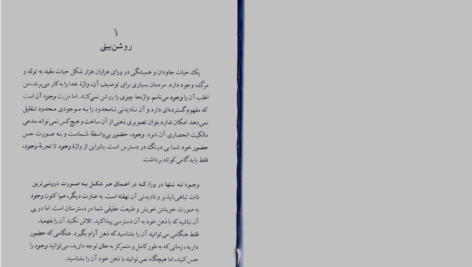 ۱
روشن‌بینی
یک حیات جاودان و همیشگی در ورای هزاران هزار شکل حیات مقید به تولد و
مرگ، وجود دارد. مردمان بسیاری برای توصیف آن، واژهٔ خدا را به کار می‌برند، من
اغلب آن را وجود می‌نامم. واژه‌ها چیزی را روشن نمی‌کنند. اما مزیت وجود آن است
که مفهوم گسترده‌ای دارد و آن نادیدنی نامحدود را به موجودی محدود تقلیل
نمی‌دهد. امکان ندارد بتوان تصویری ذهنی از آن ساخت و هیچ‌کس نمی‌تواند مدعی
مالکیت انحصاری آن شود. وجود، حضور بی‌واسطهٔ شماست و به صورت حس
حضور خود شما بی درنگ در دسترس است. بنابراین از واژهٔ وجود تا تجربهٔ وجود،
فقط باید گامی کوتاه برداشت.
وجود نه تنها در ورا، که در اعماق هر شکل به صورت درونی‌ترین
ذات تباهی‌ناپذیر و نادیدنی آن نهفته است. به عبارت دیگر، هم‌اکنون وجود
به صورت خویشتن خویش و طبیعت حقیقی شما در دسترستان است. اما در پی
آن نباشید که با ذهن خود به آن دسترسی پیدا کنید. تلاش نکنید آن را بفهمید.
فقط هنگامی می‌توانید آن را بشناسید که ذهن آرام بگیرد. هنگامی که حضور
دارید، زمانی‌که به طور کامل و متمرکز به حال توجه دارید، می‌توانید وجود را
حس کنید، اما هیچگاه نمی‌توانید با ذهن خود آن را بشناسید.